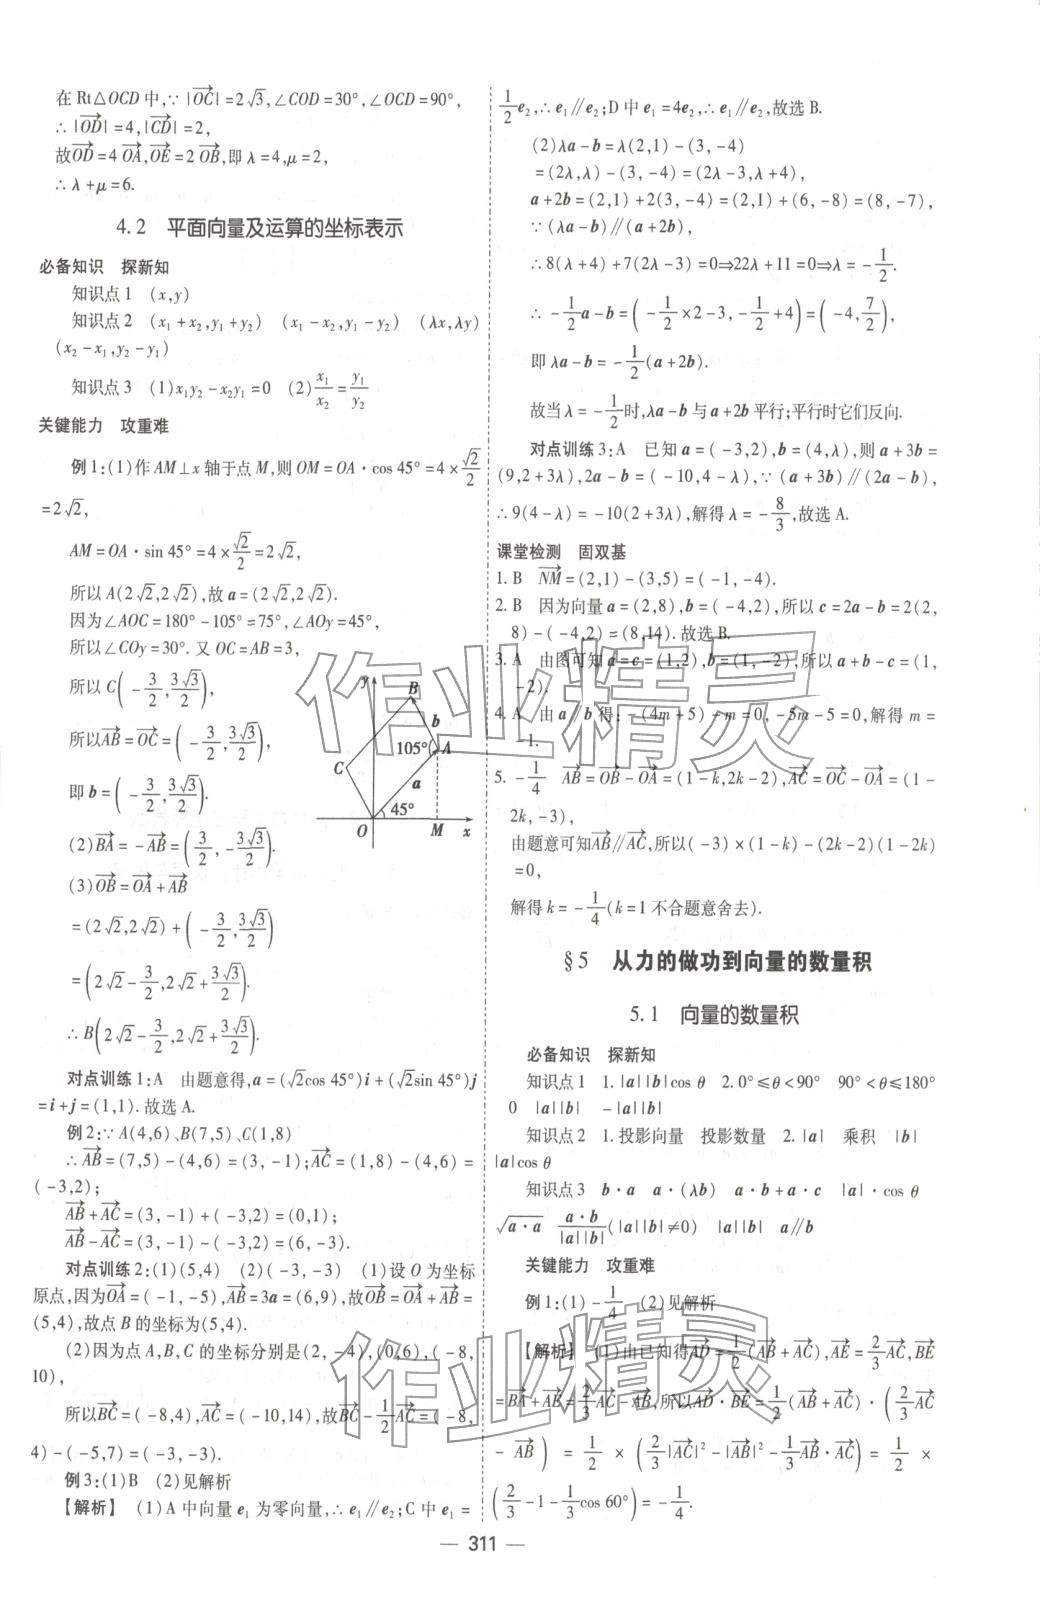 在 Rt△OCD 中,∵ |OC→|=2√3,∠COD=30°,∠OCD=90°,
∴ |OD→|=4,|CD→|=2,
故OD→=4 OA→,OE→=2 OB→,即 λ=4,μ=2,
∴ λ+μ=6.
4.2 平面向量及运算的坐标表示
必备知识 探新知
知识点1 (x,y)
知识点2 (x₁+x₂,y₁+y₂) (x₁-x₂,y₁-y₂) (λx,λy)
(x₂-x₁,y₂-y₁)
知识点3 (1)x₁y₂-x₂y₁=0 (2)x₁/x₂=y₁/y₂
关键能力 攻重难
例1:(1)作 AM⊥x 轴于点 M,则 OM=OA·cos 45°=4×√2/2
=2√2,
AM=OA·sin 45°=4×√2/2=2√2,
所以 A(2√2,2√2),故 a=(2√2,2√2).
因为∠AOC=180°-105°=75°,∠AOy=45°,
所以∠COy=30°. 又 OC=AB=3,
所以 C(-3/2,3√3/2),
所以AB→=OC→=(-3/2,3√3/2),
即 b=(-3/2,3√3/2).
y B b 105° A C a 45° O M x
(2)BA→=-AB→=(3/2,-3√3/2).
(3)OB→=OA→+AB→
=(2√2,2√2)+(-3/2,3√3/2)
=(2√2-3/2,2√2+3√3/2).
∴ B(2√2-3/2,2√2+3√3/2).
对点训练1:A 由题意得,a=(√2cos 45°)i+(√2sin 45°)j
=i+j=(1,1). 故选 A.
例2:∵ A(4,6)、B(7,5)、C(1,8)
∴ AB→=(7,5)-(4,6)=(3,-1);AC→=(1,8)-(4,6)=
(-3,2);
AB→+AC→=(3,-1)+(-3,2)=(0,1);
AB→-AC→=(3,-1)-(-3,2)=(6,-3).
对点训练2:(1)(5,4) (2)(-3,-3) (1)设 O 为坐标
原点,因为OA→=(-1,-5),AB→=3a=(6,9),故OB→=OA→+AB→=
(5,4),故点 B 的坐标为(5,4).
(2)因为点 A,B,C 的坐标分别是(2,-4),(0,6),(-8,
10),
所以BC→=(-8,4),AC→=(-10,14),故BC→-1/2AC→=(-8,
4)-(-5,7)=(-3,-3).
例3:(1)B (2)见解析
【解析】 (1)A 中向量 e₁ 为零向量,∴ e₁∥e₂;C 中 e₁=
1/2e₂,∴ e₁∥e₂;D 中 e₁=4e₂,∴ e₁∥e₂,故选 B.
(2)λa-b=λ(2,1)-(3,-4)
=(2λ,λ)-(3,-4)=(2λ-3,λ+4),
a+2b=(2,1)+2(3,-4)=(2,1)+(6,-8)=(8,-7),
∵ (λa-b)∥(a+2b),
∴ 8(λ+4)+7(2λ-3)=0⇒22λ+11=0⇒λ=-1/2.
∴ -1/2a-b=(-1/2×2-3,-1/2+4)=(-4,7/2),
即 λa-b=-1/2(a+2b).
故当 λ=-1/2时,λa-b 与 a+2b 平行;平行时它们反向.
对点训练3:A 已知 a=(-3,2),b=(4,λ),则 a+3b=
(9,2+3λ),2a-b=(-10,4-λ),∵ (a+3b)∥(2a-b),
∴ 9(4-λ)=-10(2+3λ),解得 λ=-8/3,故选 A.
课堂检测 固双基
1. B NM→=(2,1)-(3,5)=(-1,-4).
2. B 因为向量 a=(2,8),b=(-4,2),所以 c=2a-b=2(2,
8)-(-4,2)=(8,14). 故选 B.
3. A 由图可知 a=c=(1,2),b=(1,-2),所以 a+b-c=(1,
-2).
4. A 由 a∥b 得:-(4m+5)-m=0,-5m-5=0,解得 m=
-1.
5. -1/4 AB→=OB→-OA→=(1-k,2k-2),AC→=OC→-OA→=(1-
2k,-3),
由题意可知AB→∥AC→,所以(-3)×(1-k)-(2k-2)(1-2k)
=0,
解得 k=-1/4(k=1 不合题意舍去).
§5 从力的做功到向量的数量积
5.1 向量的数量积
必备知识 探新知
知识点1 1. |a||b|cos θ 2. 0°≤θ<90° 90°<θ≤180°
0 |a||b| -|a||b|
知识点2 1. 投影向量 投影数量 2. |a| 乘积 |b|
|a|cos θ
知识点3 b·a a·(λb) a·b+a·c |a|·cos θ
√a·a a·b/|a||b|(|a||b|≠0) |a||b| a∥b
关键能力 攻重难
例1:(1)-1/4 (2)见解析
【解析】 (1)由已知得AD→=1/2(AB→+AC→),AE→=2/3AC→,BE→
=BA→+AE→=2/3AC→-AB→,所以AD→·BE→=1/2(AB→+AC→)·(2/3AC→
-AB→)=1/2×(2/3|AC→|²-|AB→|²-1/3AB→·AC→)=1/2×
(2/3-1-1/3cos 60°)=-1/4.
— 311 —
作业精灵
作业精灵